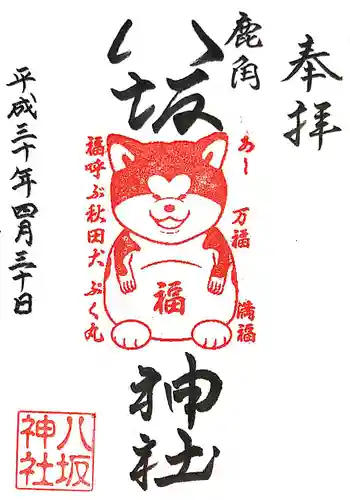 奉拝
鹿角
八坂
神社
あー
万福
満福
福
福呼ぶ秋田犬ぷく丸
平成三十年四月三十日
八坂
神社